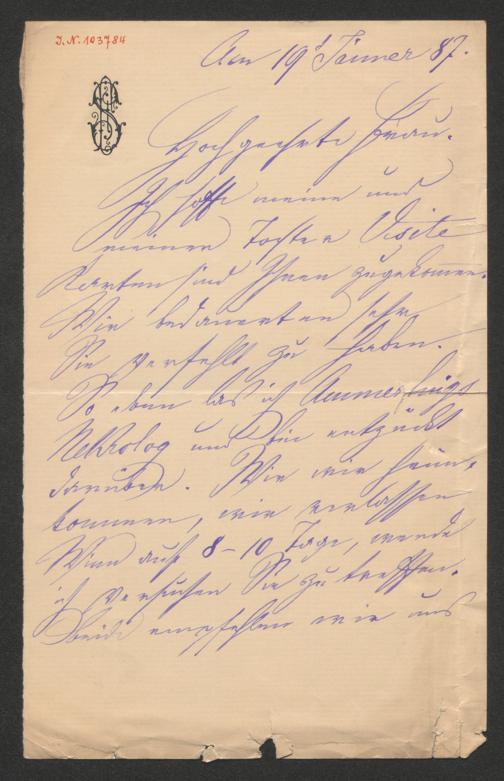 I. N. 103784
Am 19t Jänner 87.
Hochgeehrte Frau.
Ich hoffe meine und
meiner Tochter Visite
Karten sind Ihnen zugekommen.
Wir bedauerten sehr
Sie verfehlt zu haben.
So eben las ich Ammerlings
Nekrolog und bin entzückt
darüber. Wie wir heim
kommen, wir verlassen
Wien auf 8-10 Tage, werde
ich versuchen Sie zu treffen.
Beide empfehlen wir uns